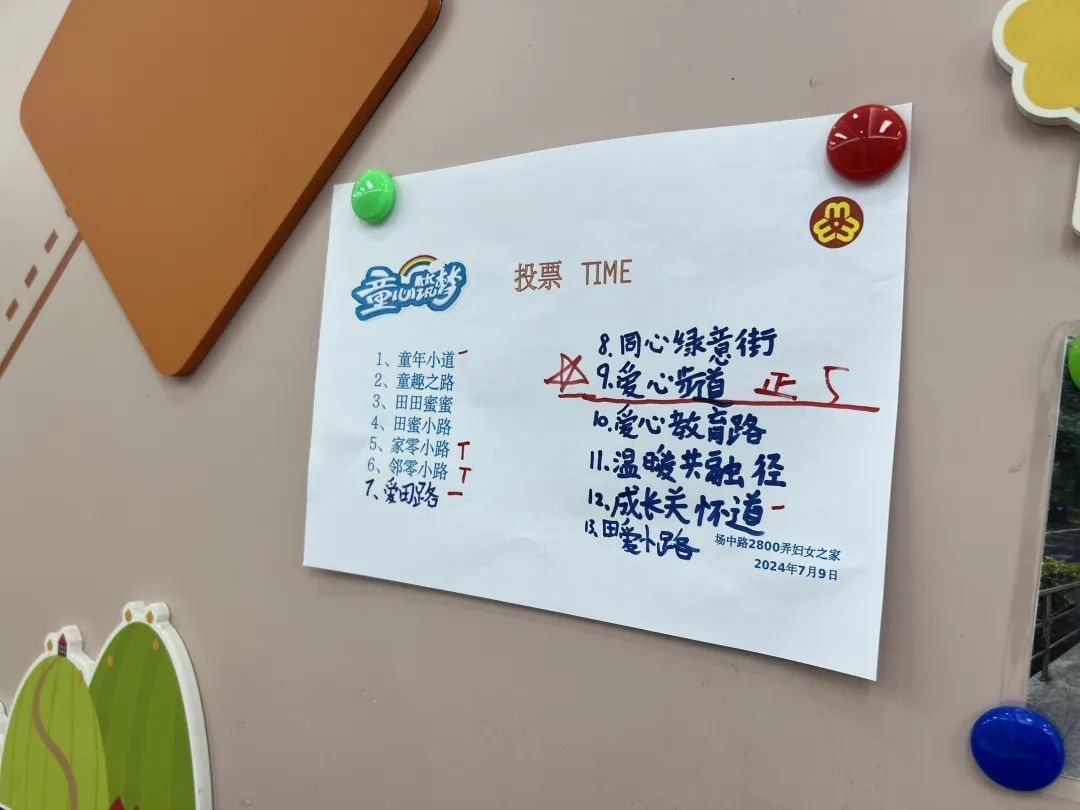 童心筑梦
投票 TIME
1、童年小道 一
2、童趣之路
3、田田蜜蜜
4、田蜜小路
5、家零小路 T
6、邻零小路 T
7、爱田路 一
8.同心绿意街
9.爱心步道 正 5
10.爱心教育路
11.温暖共融径
12.成长关怀道 一
13.田爱小路
场中路2800弄妇女之家
2024年7月9日